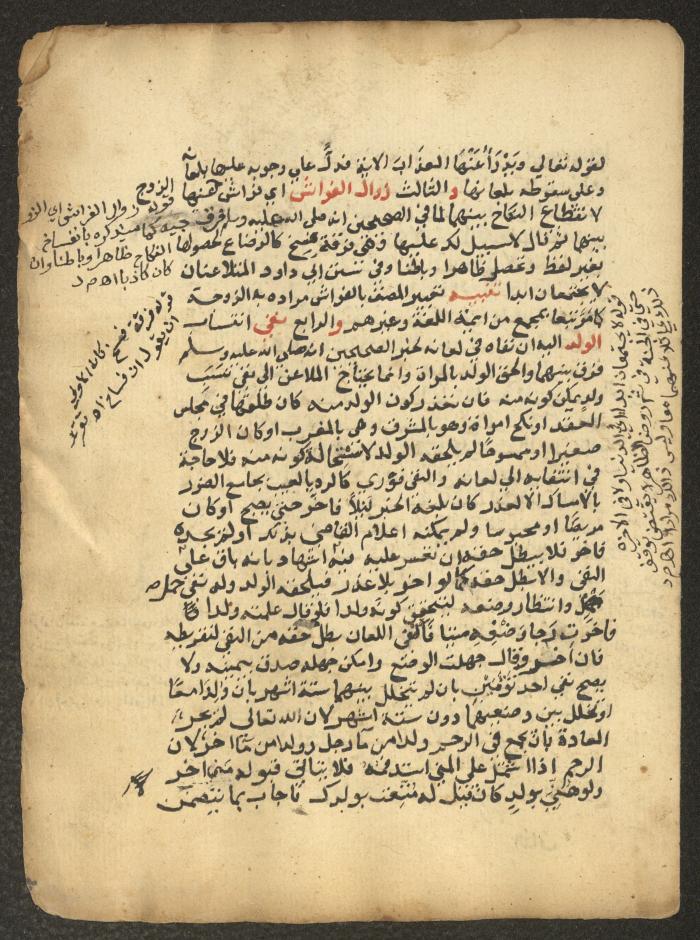 لقوله تعالى ويدرأ عنها العذاب الاية فدل على وجوبه عليها بلعانه
وعلى سقوطه بلعانها والثالث زوال الفراش اي فراش الزوج عنها
لانقطاع النكاح بينهما لما في الصحيحين انه صلى الله عليه وسلم فرق
بينهما ثم قال لا سبيل لك عليها وهي فرقة فسخ كالرضاع لحصولها
بغير لفظ وتحصل ظاهرا وباطنا وفي سنن ابي داود المتلاعنان
لا يجتمعان ابدا تنبيه تعبير المصنف بالفراش مراده به الزوجة
كما مر تبعا لجمع من ايمة اللغة وغيرهم والرابع نفي انتساب
الولد اليه ان نفاه في لعانه لخبر الصحيحين انه صلى الله عليه وسلم
فرق بينهما والحق الولد بالمراة وانما يحتاج الملاعن الى نفي نسب
ولد يمكن كونه منه فان تعذر كون الولد منه كان طلقها في مجلس
العقد او نكح امراة وهو بالمشرق وهي بالمغرب او كان الزوج
صغيرا او ممسوحا لم يلحقه الولد لاستحالة كونه منه فلا حاجة
في انتفايه الى لعانه والنفي فوري كالرد بالعيب بجامع الضرر
بالامساك الا لعذر كان بلغه الخبر ليلا فاخر حتى يصبح او كان
مريضا او محبوسا ولم يمكنه اعلام القاضي بذلك او لم يجده
فاخر فلا يبطل حقه ان تعسر عليه فيه اشهاد بانه باق على
النفي والا بطل حقه كما لو اخر بلا عذر فيلحقه الولد وله نفي حمل
وانتظار وضعه ليتحقق كونه ولدا فلو قال علمته ولدا
فاخرت رجا وضعه ميتا فاكفى اللعان بطل حقه من النفي لتفريطه
فان اخر وقال جهلت الوضع وامكن جهله صدق بيمينه ولا
يصح نفي احد توءمين بان لم يتخلل بينهما ستة اشهر بان ولدا معا
او تخلل بين وضعيهما دون ستة اشهر لان الله تعالى لم يجر
العادة بان يجمع في الرحم ولد من ما رجل وولد من ما اخر لان
الرحم اذا اشتمل على المني استد فمه فلا يتاتى قبوله مني اخر
ولو هني بولد كان قيل له متعت بولدك فاجاب بما يتضمن
قوله زوال الفراش اي
كان كاذبا اهـ م د
قوله فرقة فسخ